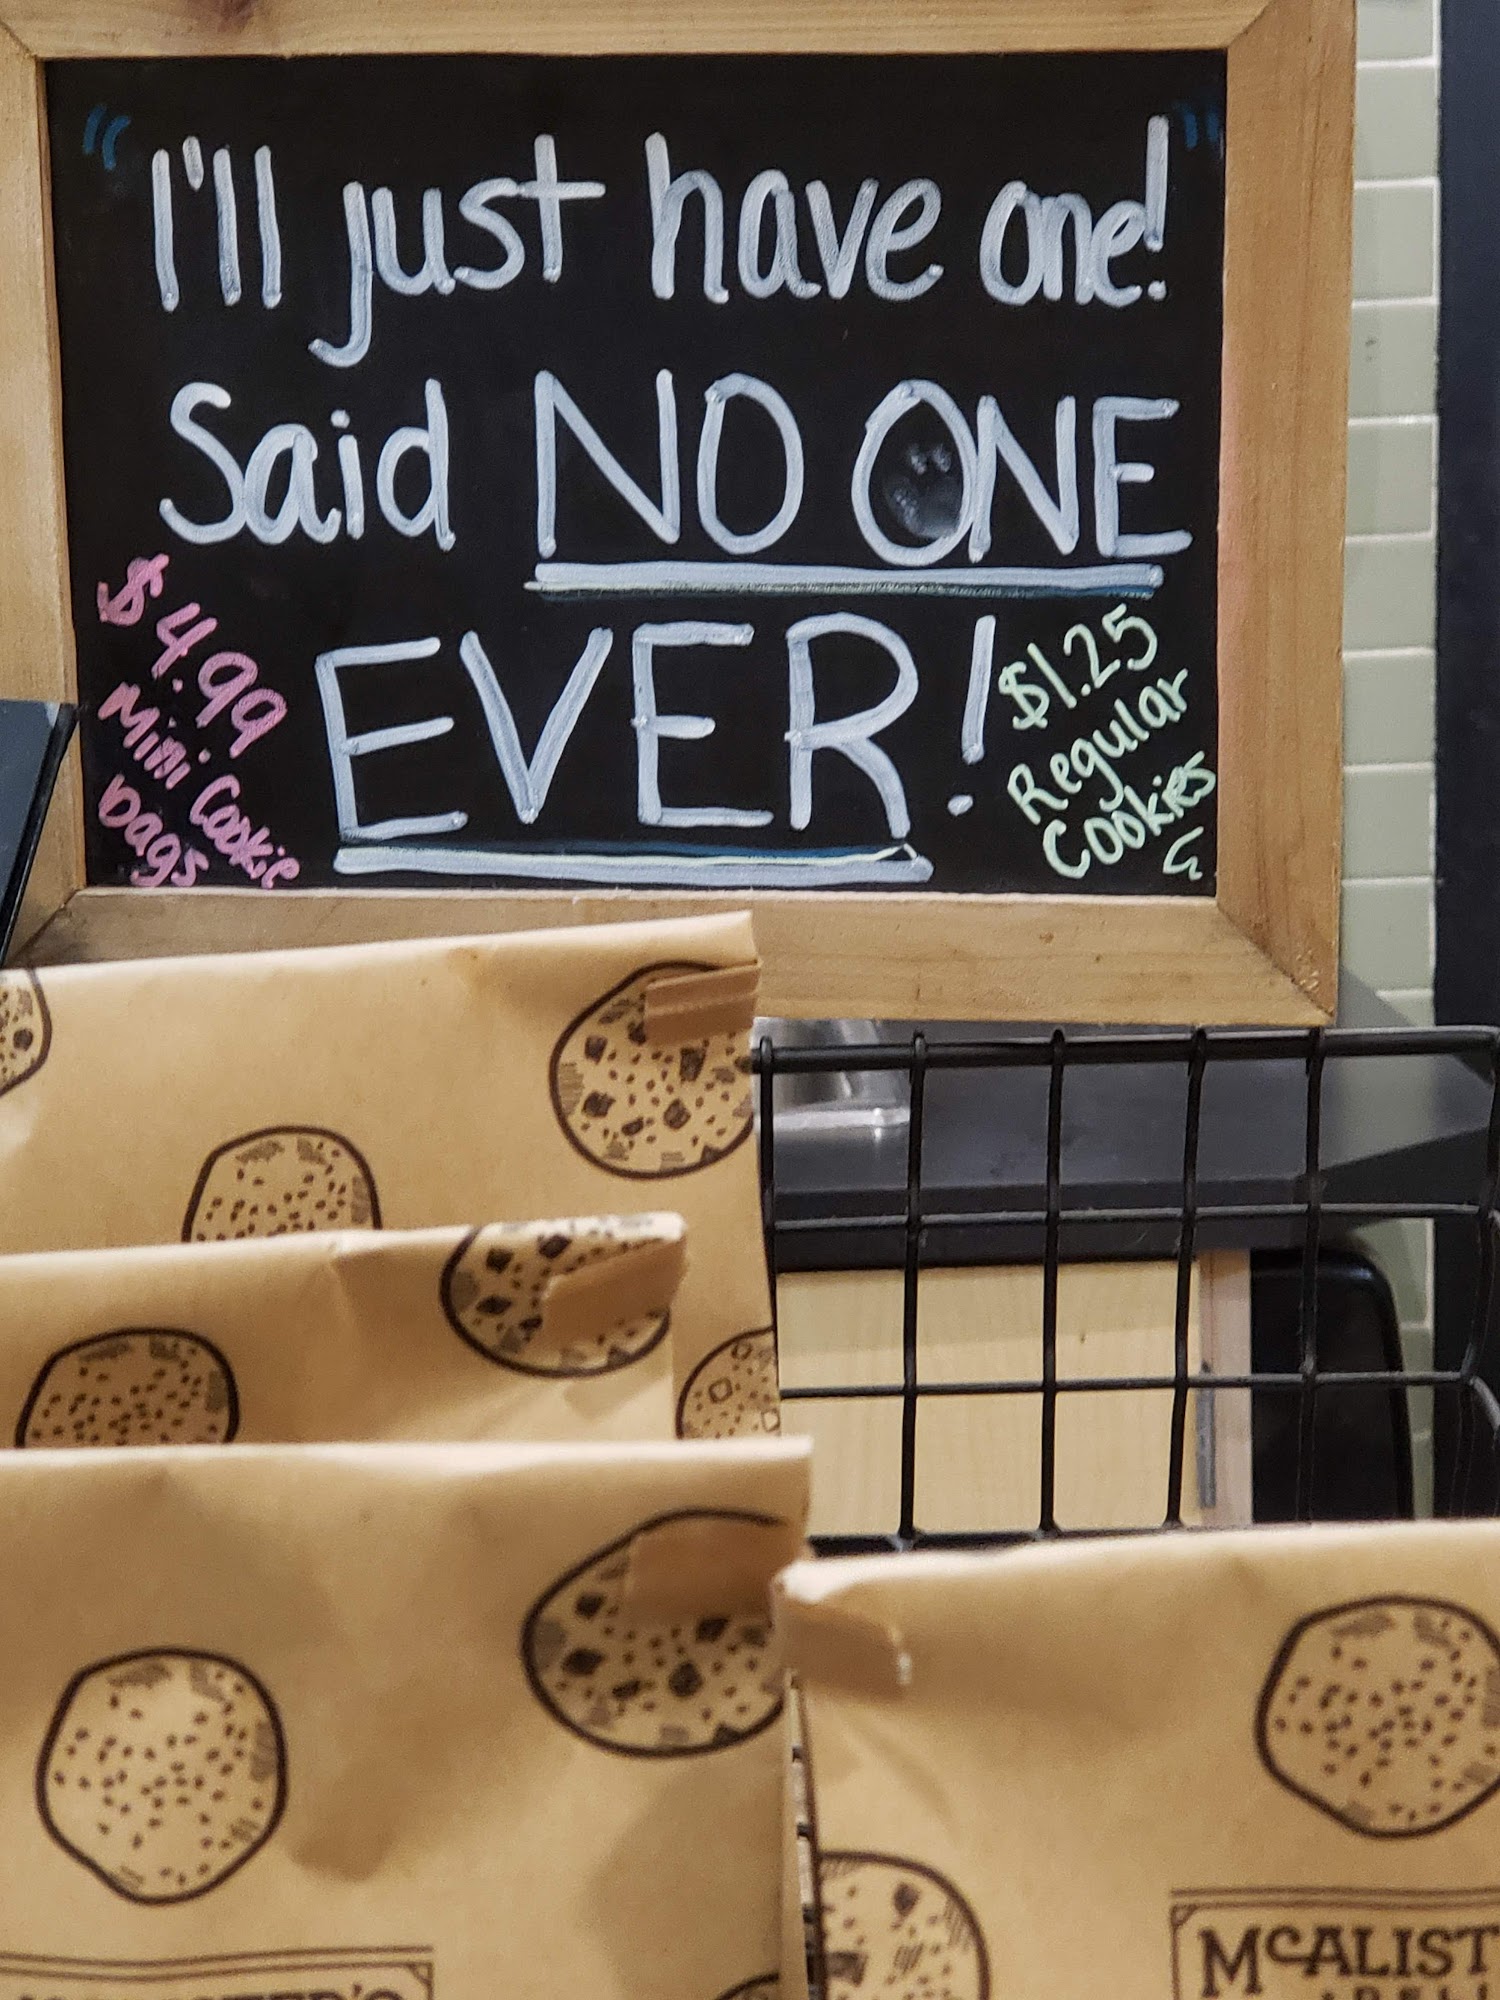 "I'll just have one!"
Said NO ONE
EVER!
$4.99
Mini Cookie
bags
$1.25
Regular
Cookies
MCALIST
DELI